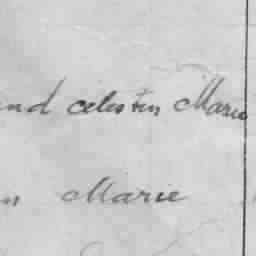 and celestin Marie
n Marie